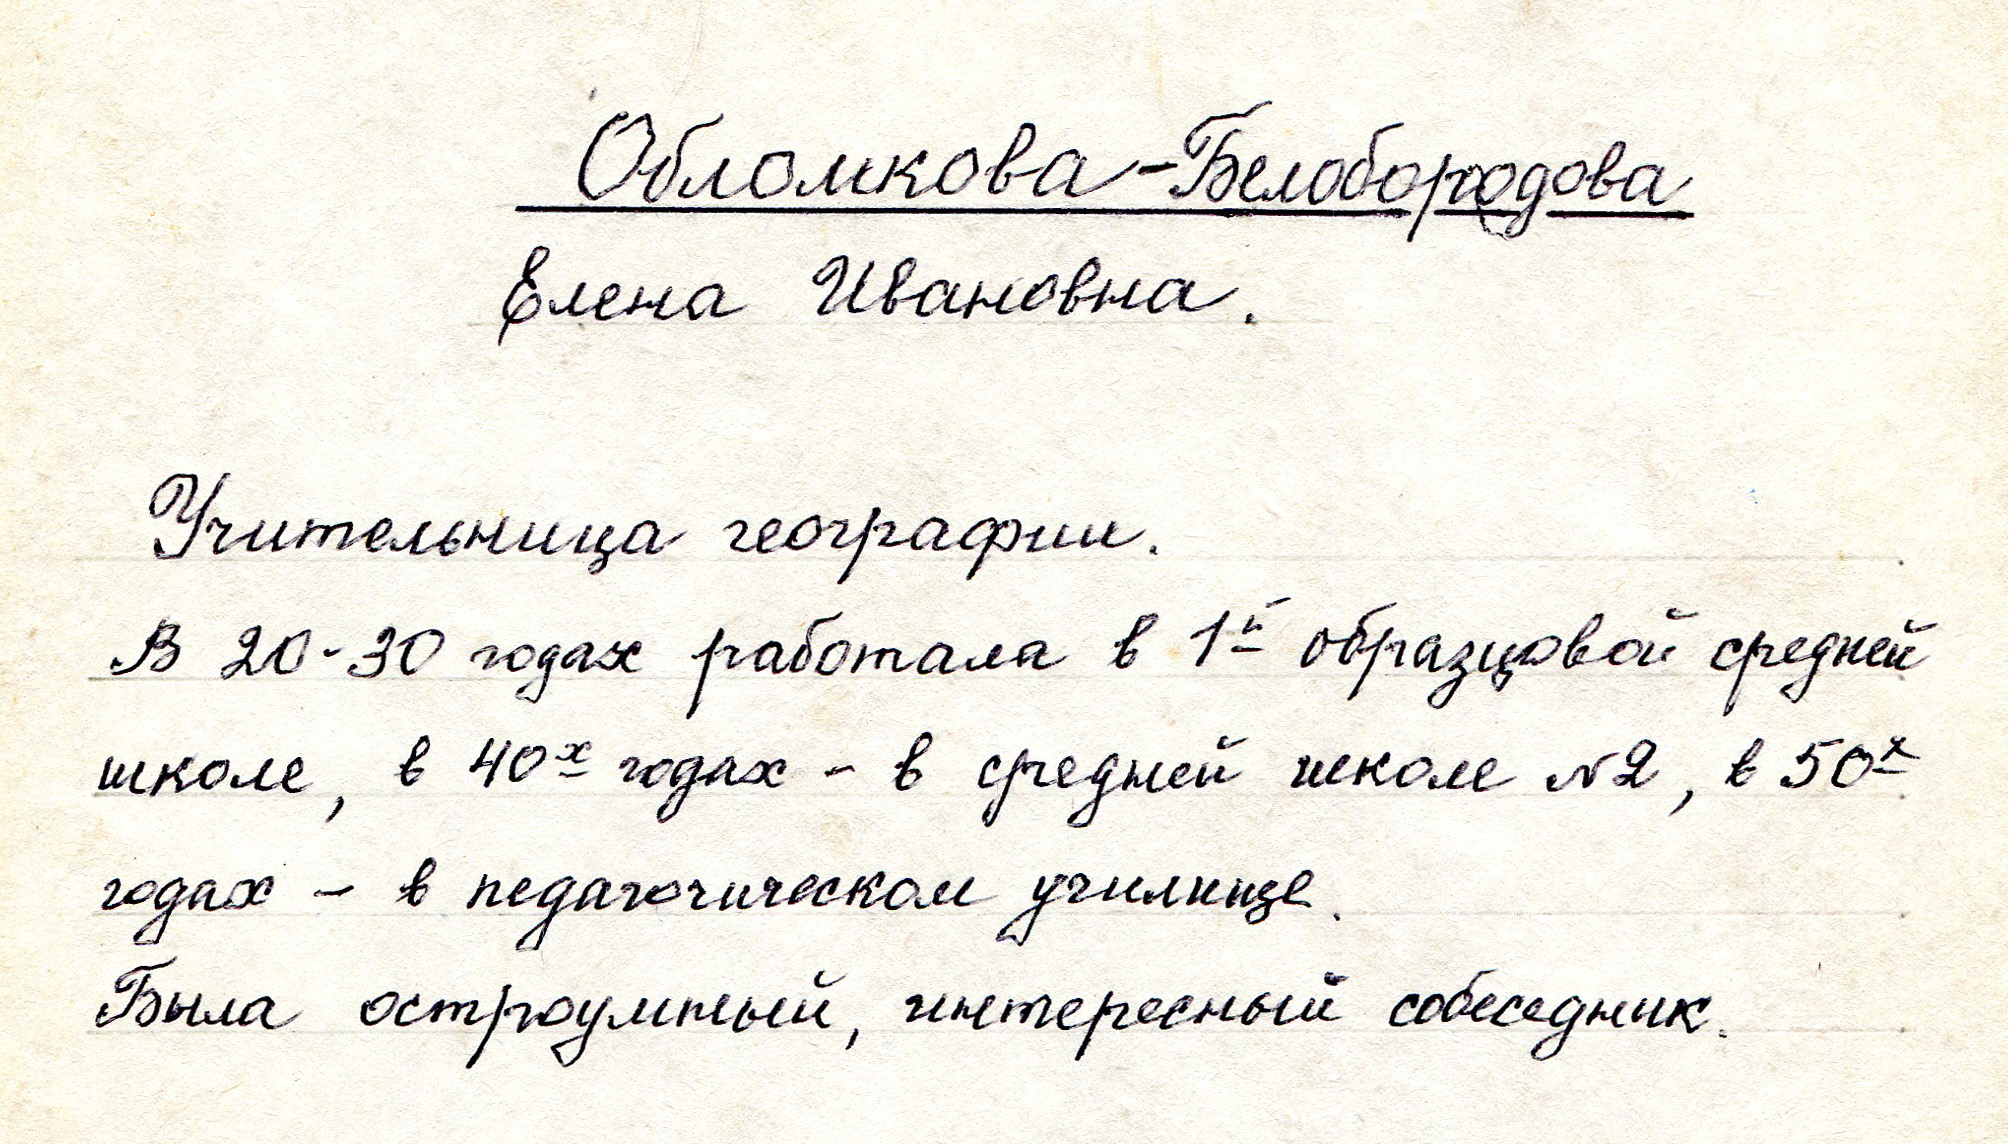 Обломкова-Белобородова
Елена Ивановна.
Учительница географии.
В 20-30 годах работала в 1й образцовой средней
школе, в 40х годах - в средней школе №2, в 50х
годах - в педагогическом училище.
Была остроумный, интересный собеседник.